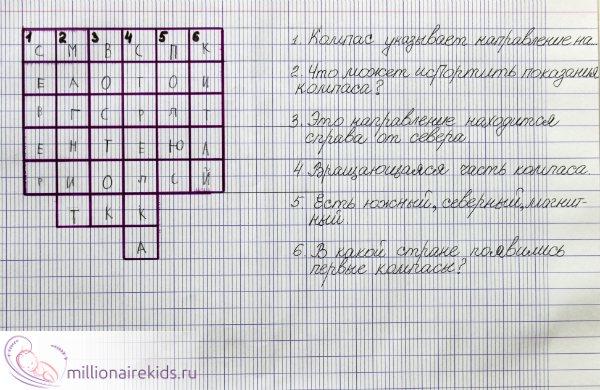 1 2 3 4 5 6
С М В С П К
Е А О Т О И
В Г С Р Л Т
Е Н Т Е Ю А
Р И О Л С Й
Т К К
А
1. Компас указывает направление на
2. Что может испортить показания
компаса?
3. Это направление находится
справа от севера.
4. Вращающаяся часть компаса.
5. Есть южный, северный, магнит-
ный.
6. В какой стране появились
первые компасы?
millionairekids.ru